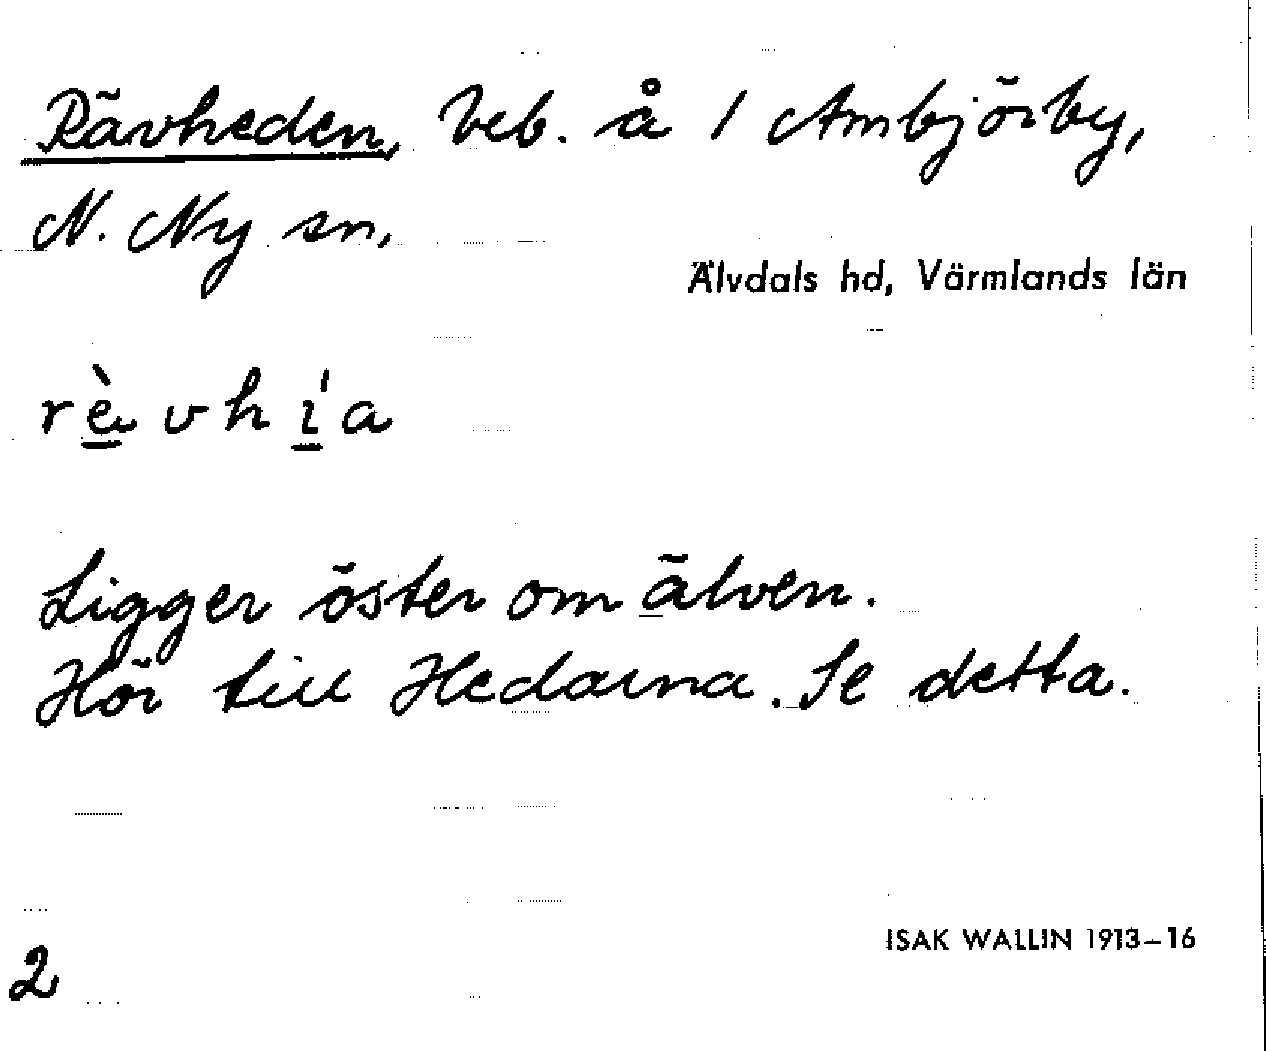 Rävheden, beb. å 1 Ambjörby,
N. Ny sn,
Älvdals hd, Värmlands län
rè̱vhi̱'a
Ligger öster om älven.
Hör till Hedarna. Se detta.
ISAK WALLIN 1913–16
2